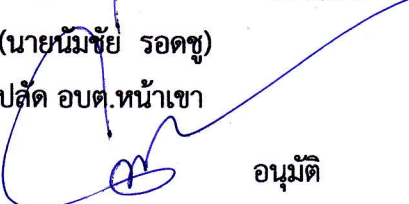 (นายนัมชัย รอดชู)
ปลัด อบต.หน้าเขา
อนุมัติ